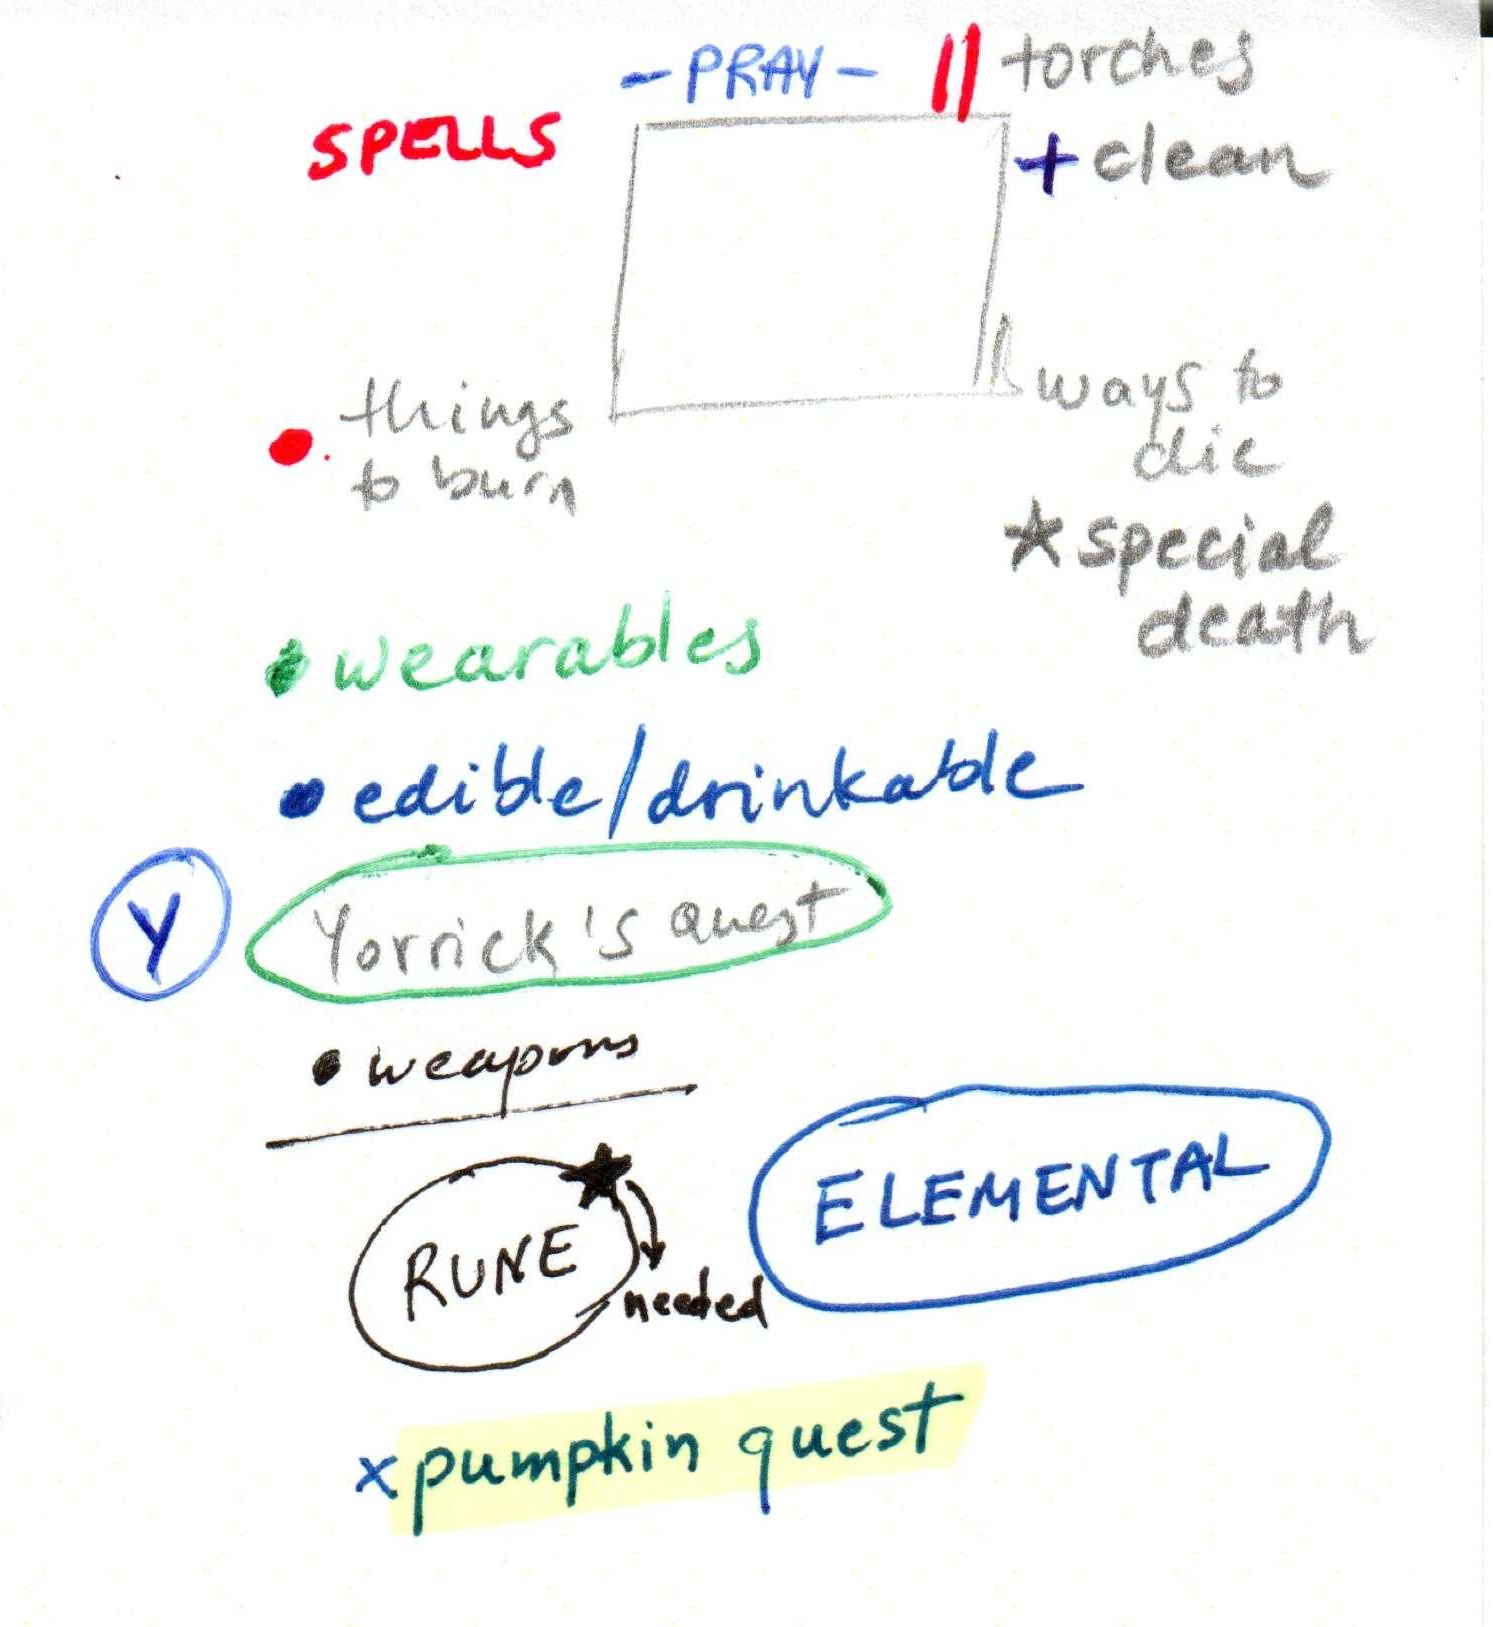 - PRAY -
torches
SPELLS
+ clean
things
to burn
ways to
die
★ special
death
• wearables
• edible/drinkable
Y
Yorrick's quest
• weapons
RUNE
needed
ELEMENTAL
x pumpkin quest